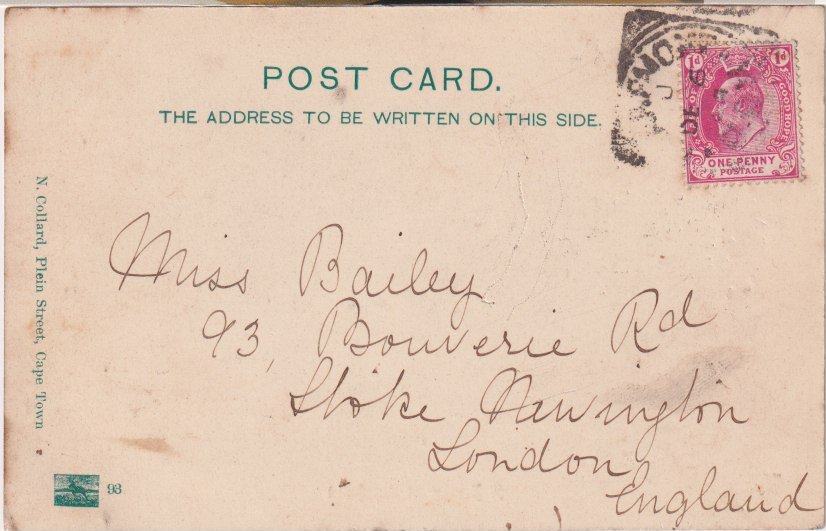 POST CARD.
THE ADDRESS TO BE WRITTEN ON THIS SIDE.
1d 1d
GOOD HOPE
ONE PENNY
POSTAGE
Miss Bailey
93, Bouverie Rd
Stoke Newington
London
England
N. Collard, Plein Street, Cape Town
93